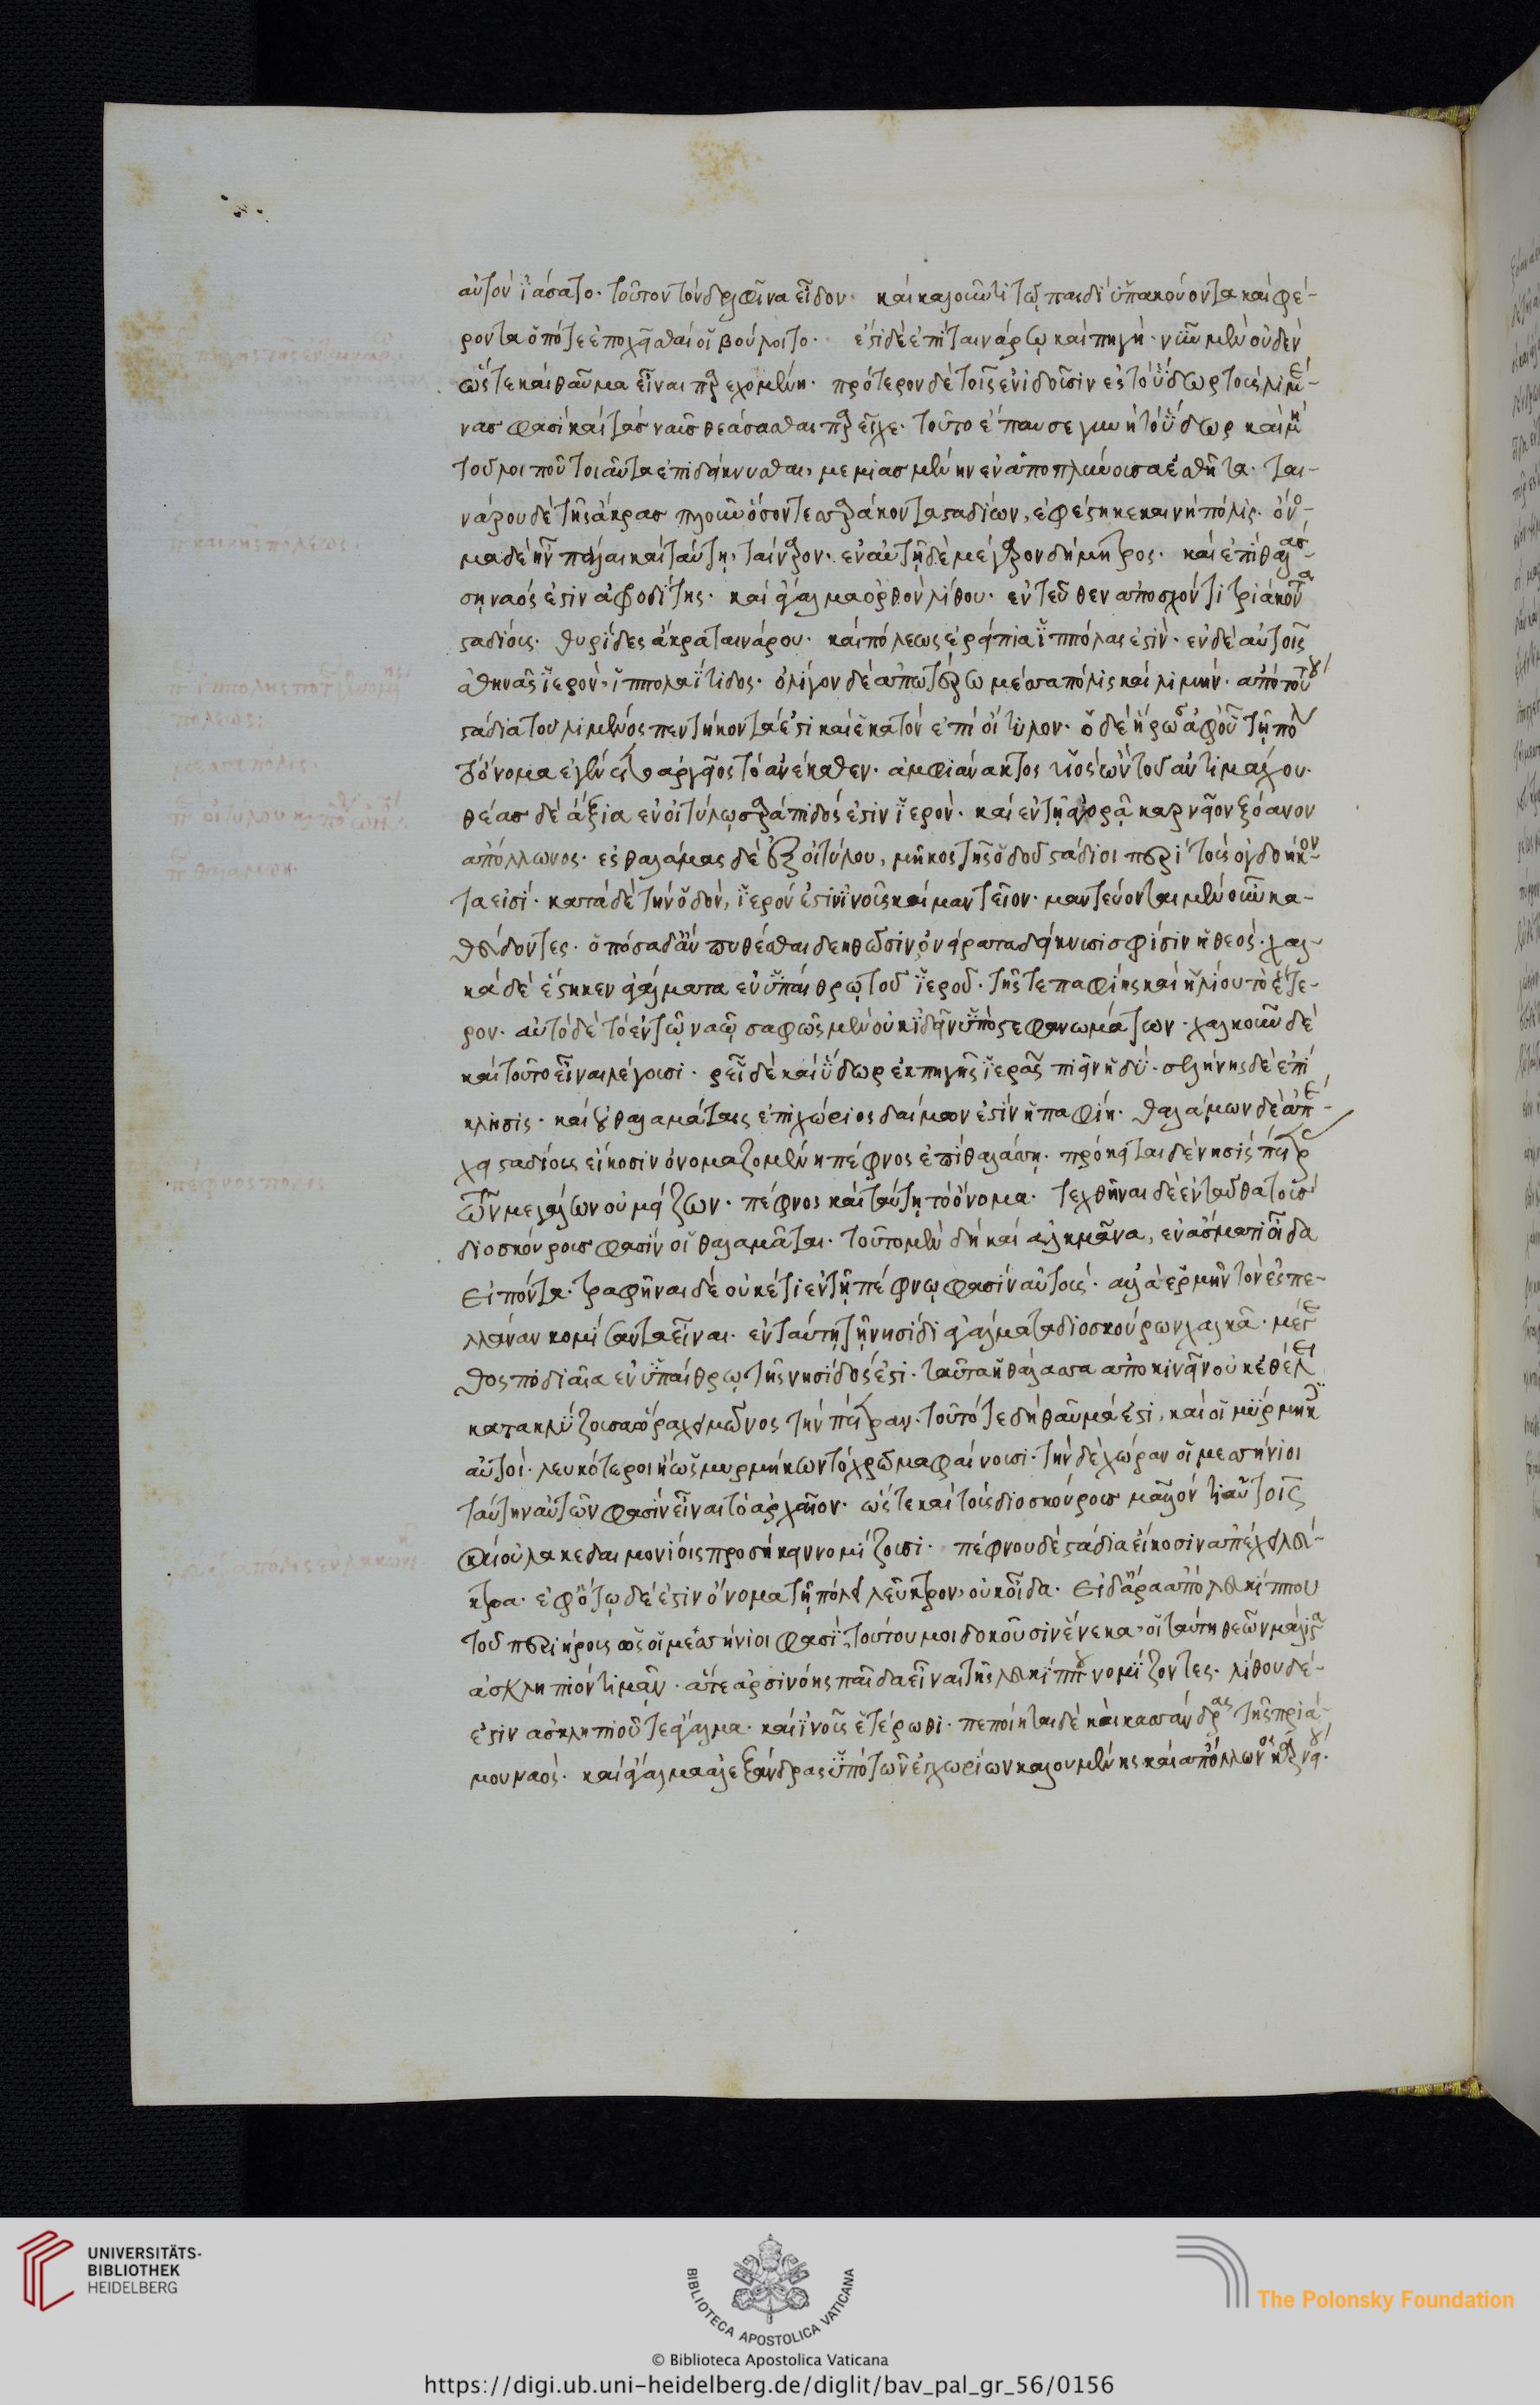 αὐτὸν ἰάσατο· τοῦτον τὸν δελφῖνα εἶδον· καὶ καλοῦντι τῷ παιδὶ ὑπακούοντα καὶ φέ-
ροντα ὁπότε ἐποχεῖσθαί οἱ βούλοιτο· ἔστι δὲ ἐπὶ ταινάρῳ καὶ πηγή· νῦν μὲν οὐδὲν
ὥστε καὶ θαῦμα εἶναι παρεχομένη· πρότερον δὲ τοῖς ἐνιδοῦσιν ἐς τὸ ὕδωρ τοὺς λιμέ-
νας φασὶ καὶ τὰς ναῦς θεάσασθαι παρεῖχε· τοῦτο ἔπαυσε γυνὴ τὸ ὕδωρ καὶ μὴ
τοῦ λοιποῦ τοιαῦτα ἐπιδείκνυσθαι, μεμιασμένην ἐναποπλύνουσα ἐσθῆτα· ται-
νάρου δὲ τῆς ἄκρας πλοῦν ὅσον τεσσαράκοντα σταδίων, ἐφέστηκε καινὴ πόλις· ὄνο-
μα δὲ ἦν πάλαι καὶ ταύτῃ, ταίναρον· ἐν αὐτῇ δὲ μέγαρον δήμητρος· καὶ ἐπὶ θαλάσ-
σῃ ναός ἐστιν ἀφροδίτης· καὶ ἄγαλμα ὀρθὸν λίθου· ἐντεῦθεν ἀποσχόντι τριάκοντα
σταδίοις· θυρίδες ἄκρα ταινάρου· καὶ πόλεως ἐρείπια ἱππόλας ἐστίν· ἐν δὲ αὐτοῖς
ἀθηνᾶς ἱερόν, ἱππολαΐτιδος· ὀλίγον δὲ ἀπωτέρω μέσσα πόλις καὶ λιμήν· ἀπὸ τούτου
στάδια τοῦ λιμένος πεντήκοντά ἐστι καὶ ἑκατὸν ἐπὶ οἴτυλον· ὁ δὲ ἥρως ἀφ' οὗ τῇ πόλει
τὸ ὄνομα ἐγένετο ἀργεῖος τὸ ἀνέκαθεν· ἀμφιάνακτος υἱὸς ὢν τοῦ ἀντιμάχου·
θέας δὲ ἄξια ἐν οἰτύλῳ σαράπιδός ἐστιν ἱερόν· καὶ ἐν τῇ ἀγορᾷ καρνεῖον ξόανον
ἀπόλλωνος· ἐς θαλάμας δὲ ἐξ οἰτύλου, μῆκος τῆς ὁδοῦ στάδιοι περὶ τοὺς ὀγδοήκον-
τα εἰσί· κατὰ δὲ τὴν ὁδόν, ἱερόν ἐστιν ἰνοῦς καὶ μαντεῖον· μαντεύονται μὲν οὖν κα-
θεύδοντες· ὁπόσα δ' ἂν πυθέσθαι δεηθῶσιν ὀνείρατα δείκνυσι σφίσιν ἡ θεός· χαλ-
κᾶ δὲ ἕστηκεν ἀγάλματα ἐν ὑπαίθρῳ τοῦ ἱεροῦ· τῆς τε παφίης καὶ ἡλίου τὸ ἕτε-
ρον· αὐτὸ δὲ τὸ ἐν τῷ ναῷ σαφῶς μὲν οὐκ ἰδεῖν ὑπὸ στεφανωμάτων· χαλκοῦν δὲ
καὶ τοῦτο εἶναι λέγουσι· ῥεῖ δὲ καὶ ὕδωρ ἐκ πηγῆς ἱερᾶς πιεῖν ἡδύ· σελήνης δὲ ἐπί
κλησις· καὶ οὐ θαλαμάταις ἐπιχώριος δαίμων ἐστὶν ἡ παφίη· θαλάμων δὲ ἀπέ-
χει σταδίους εἴκοσιν ὀνομαζομένη πέφνος ἐπὶ θαλάσσῃ· πρόκειται δὲ νησὶς πέτρας
τῶν μεγάλων οὐ μείζων· πέφνος καὶ ταύτῃ τὸ ὄνομα· τεχθῆναι δὲ ἐνταῦθα τοὺς
διοσκούρους φασὶν οἱ θαλαμᾶται· τοῦτο μὲν δὴ καὶ ἀλκμᾶνα, ἐν ᾄσματι οἶδα
εἰπόντα· τραφῆναι δὲ οὐκέτι ἐν τῇ πέφνῳ φασὶν αὐτούς· ἀλλὰ ἑρμῆν τὸν ἐς πε-
λλάναν κομίσαντα εἶναι· ἐν ταύτῃ τῇ νησίδι ἀγάλματα διοσκούρων χαλκᾶ· μέγε-
θος ποδιαῖα ἐν ὑπαίθρῳ τῆς νησίδός ἐστι· ταῦτα ἡ θάλασσα ἀποκινεῖν οὐκ ἐθέλει
κατακλύζουσα ὥρᾳ χειμῶνος τὴν πέτραν· τοῦτό τε δὴ θαῦμά ἐστι, καὶ οἱ μύρμηκες
αὐτοὶ· λευκότεροι ἢ ὡς μυρμήκων τὸ χρῶμα φαίνουσι· τὴν δὲ χώραν οἱ μεσσήνιοι
ταύτην αὐτῶν φασὶν εἶναι τὸ ἀρχαῖον· ὥστε καὶ τοὺς διοσκούρους μᾶλλόν τι αὐτοῖς
καὶ οὐ λακεδαιμονίοις προσήκειν νομίζουσι· πέφνου δὲ στάδια εἴκοσιν ἀπέχει λεῦ-
κτρα· ἐφ' ὅτῳ δέ ἐστιν ὄνομα τῇ πόλει λεῦκτρον, οὐκ οἶδα· εἰ δ' ἄρα ἀπὸ λευκίππου
τοῦ περιήρους ὡς οἱ μεσσήνιοι φασί, τούτου μοι δοκοῦσιν ἕνεκα, οἱ ταύτῃ θεῶν μάλιστα
ἀσκληπιὸν τιμᾶν· ἅτε ἀρσινόης παῖδα εἶναι τῆς λευκίππου νομίζοντες· λίθου δέ-
ἐστιν ἀσκληπιοῦ τε ἄγαλμα· καὶ ἰνοῦς ἑτέρωθι· πεποίηται δὲ καὶ κασσάνδρας τῆς πριά-
μου ναός· καὶ ἄγαλμα ἀλεξάνδρας ὑπὸ τῶν ἐπιχωρίων καλουμένης καὶ ἀπόλλωνος καρνείου·
UNIVERSITÄTS-
BIBLIOTHEK
HEIDELBERG
BIBLIOTECA APOSTOLICA VATICANA
The Polonsky Foundation
© Biblioteca Apostolica Vaticana
https://digi.ub.uni-heidelberg.de/diglit/bav_pal_gr_56/0156